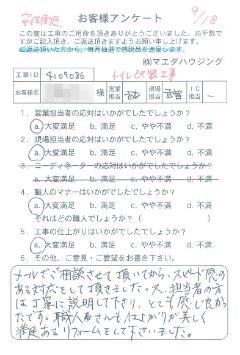 安佐南区
お客様アンケート
9/18
この度は工事のご用命を頂きありがとうございました。お手数で
すがご記入頂き、ご返送頂きますようお願い申し上げます。
ご返送頂いた方から、毎月抽選で感謝品を進呈します。
㈱マエダハウジング
工事ID
トイレ改装工事
お客様名
様
営業担当
現場担当
工事担当
1．営業担当者の応対はいかがでしたでしょうか？
a.大変満足 b.満足 c.やや不満 d.不満
2．現場担当者の応対はいかがでしたでしょうか？
a.大変満足 b.満足 c.やや不満 d.不満
3．コーディネーターの応対はいかがでしたでしょうか？
a.大変満足 b.満足 c.やや不満 d.不満
4．職人のマナーはいかがでしたでしょうか？
a.大変満足 b.満足 c.やや不満 d.不満
それはどの職人でしょうか？（ ）
5．工事の仕上がりはいかがでしたでしょうか？
a.大変満足 b.満足 c.やや不満 d.不満
6．その他、ご意見・ご要望をお書き下さい。
メールでご相談させて頂いてから、スピード感の
ある対応をして頂きました。又、担当者の方
は丁寧に説明して下さり、とても感じ良かっ
たです。職人さんも仕上がりが美しく
満足あるリフォームをして下さいました。